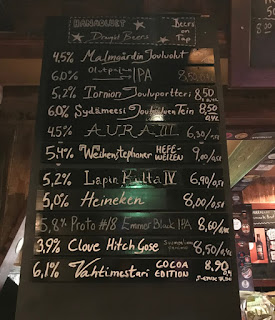 HANAOLUET
Draught Beers
Beers on Tap
4,5% Malmgårdin Jouluolut
6,0% Olutpaja IPA 8,50
5,2% Tornion Jouluportteri 8,50
6,0% Sydämeesi Jouluinen Tein 8,50
4,5% AURA III 6,30
5,4% Weihenstephaner HEFE-WEIZEN 9,00
5,2% Lapin Kulta IV 6,90
5,0% Heineken 8,00
5,8% Proto #18 Emmer Black IPA 8,60
3,9% Clove Hitch Gose 8,50
6,1% Vahtimestari COCOA EDITION 8,90